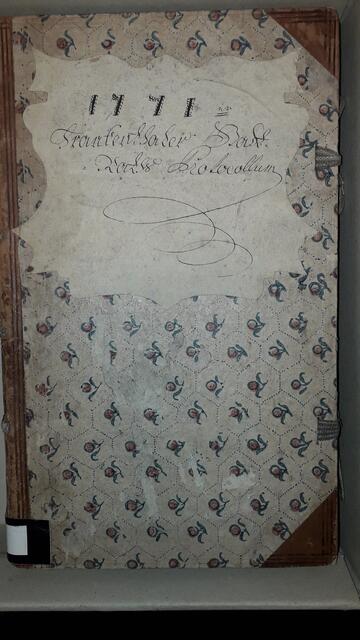 1771
Franckenthaler Stadt
Raths Protocollum